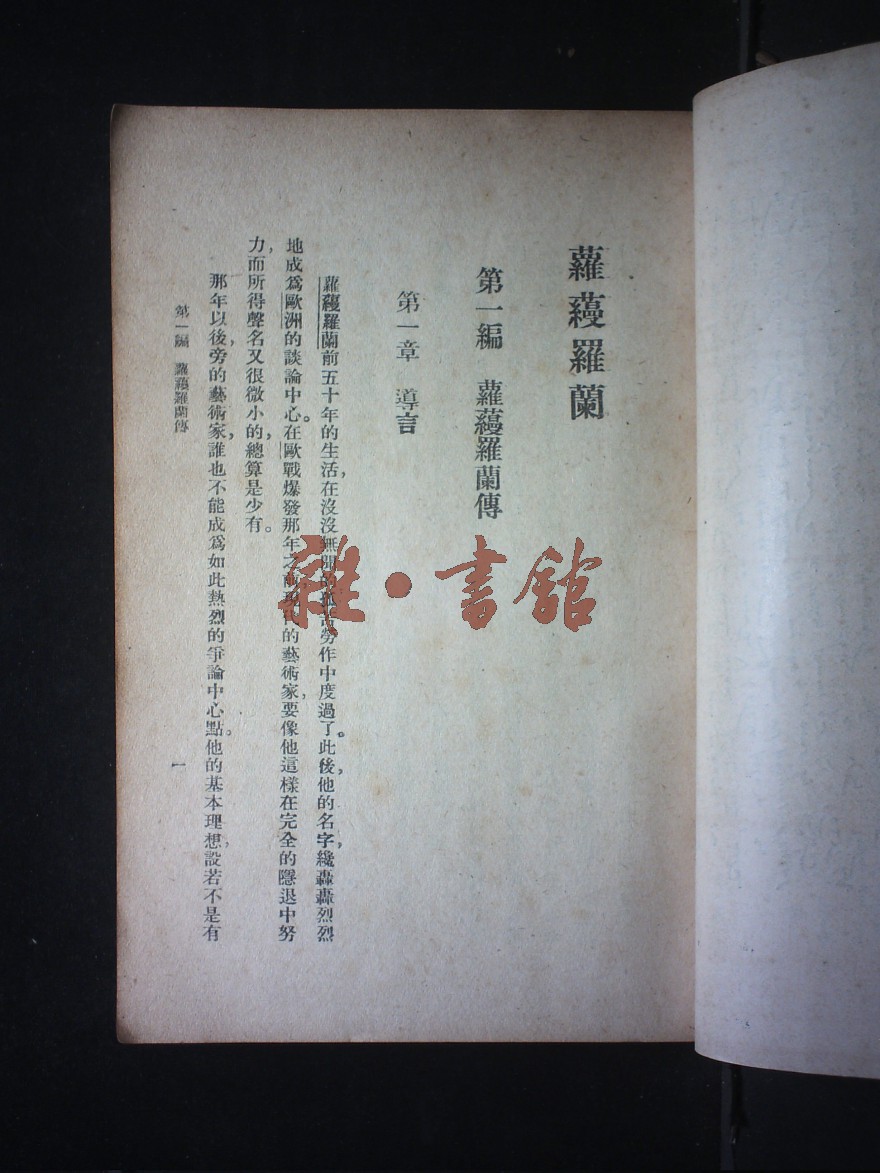 蘿蔓羅蘭
第一編　蘿蔓羅蘭傳
第一章　導言
蘿蔓羅蘭前五十年的生活，在沒沒無聞的孤苦勞作中度過了。此後，他的名字，纔轟轟烈烈
地成爲歐洲的談論中心。在歐戰爆發那年之前，現代的藝術家，要像他這樣在完全的隱退中努
力，而所得聲名又很微小的，總算是少有。
那年以後，旁的藝術家，誰也不能成爲如此熱烈的爭論中心點。他的基本理想，設若不是有
第一編　蘿蔓羅蘭傳
一
雜·書館